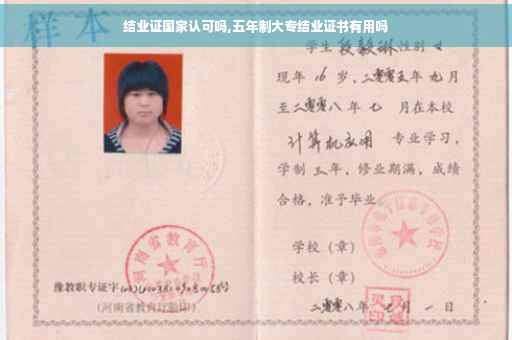 结业证国家认可吗,五年制大专结业证书有用吗
样本
学生段毅琳性别女
现年16岁,二零零五年九月
至二零零八年七月在本校
计算机应用 专业学习,
学制三年,修业期满,成绩
合格,准予毕业
学校（章）
校长（章）
河南省教育厅
豫教职专证字
(河南省教育厅验印)
二零零八年七月一日